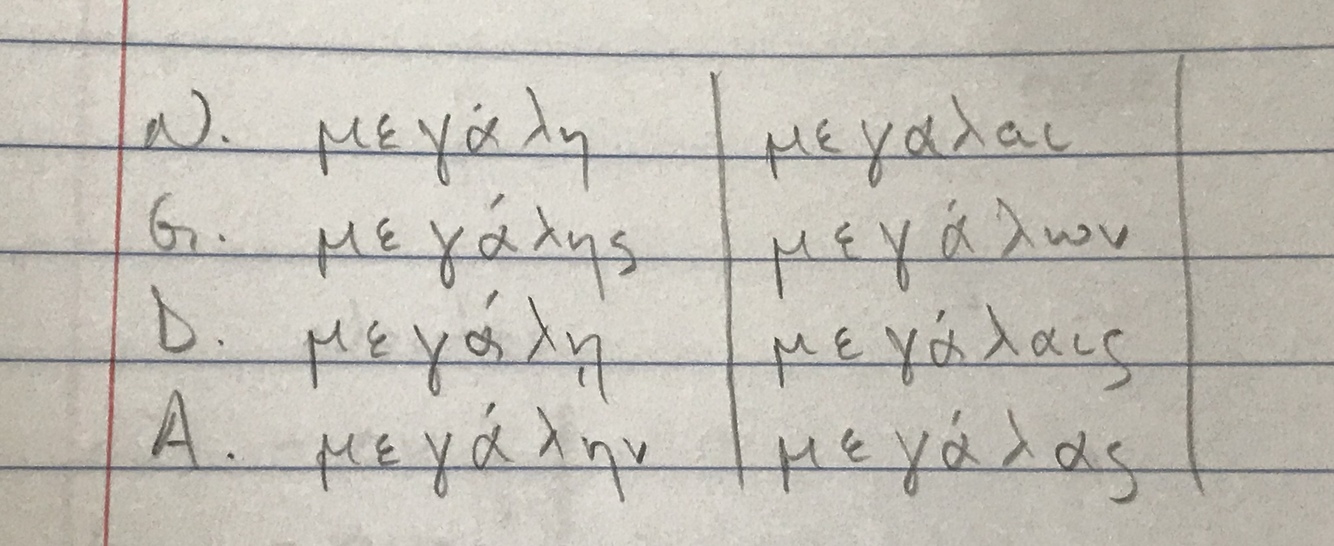 N. μεγάλη μεγαλαι
G. μεγάλης μεγάλων
D. μεγάλῃ μεγάλαις
A. μεγάλην μεγάλας